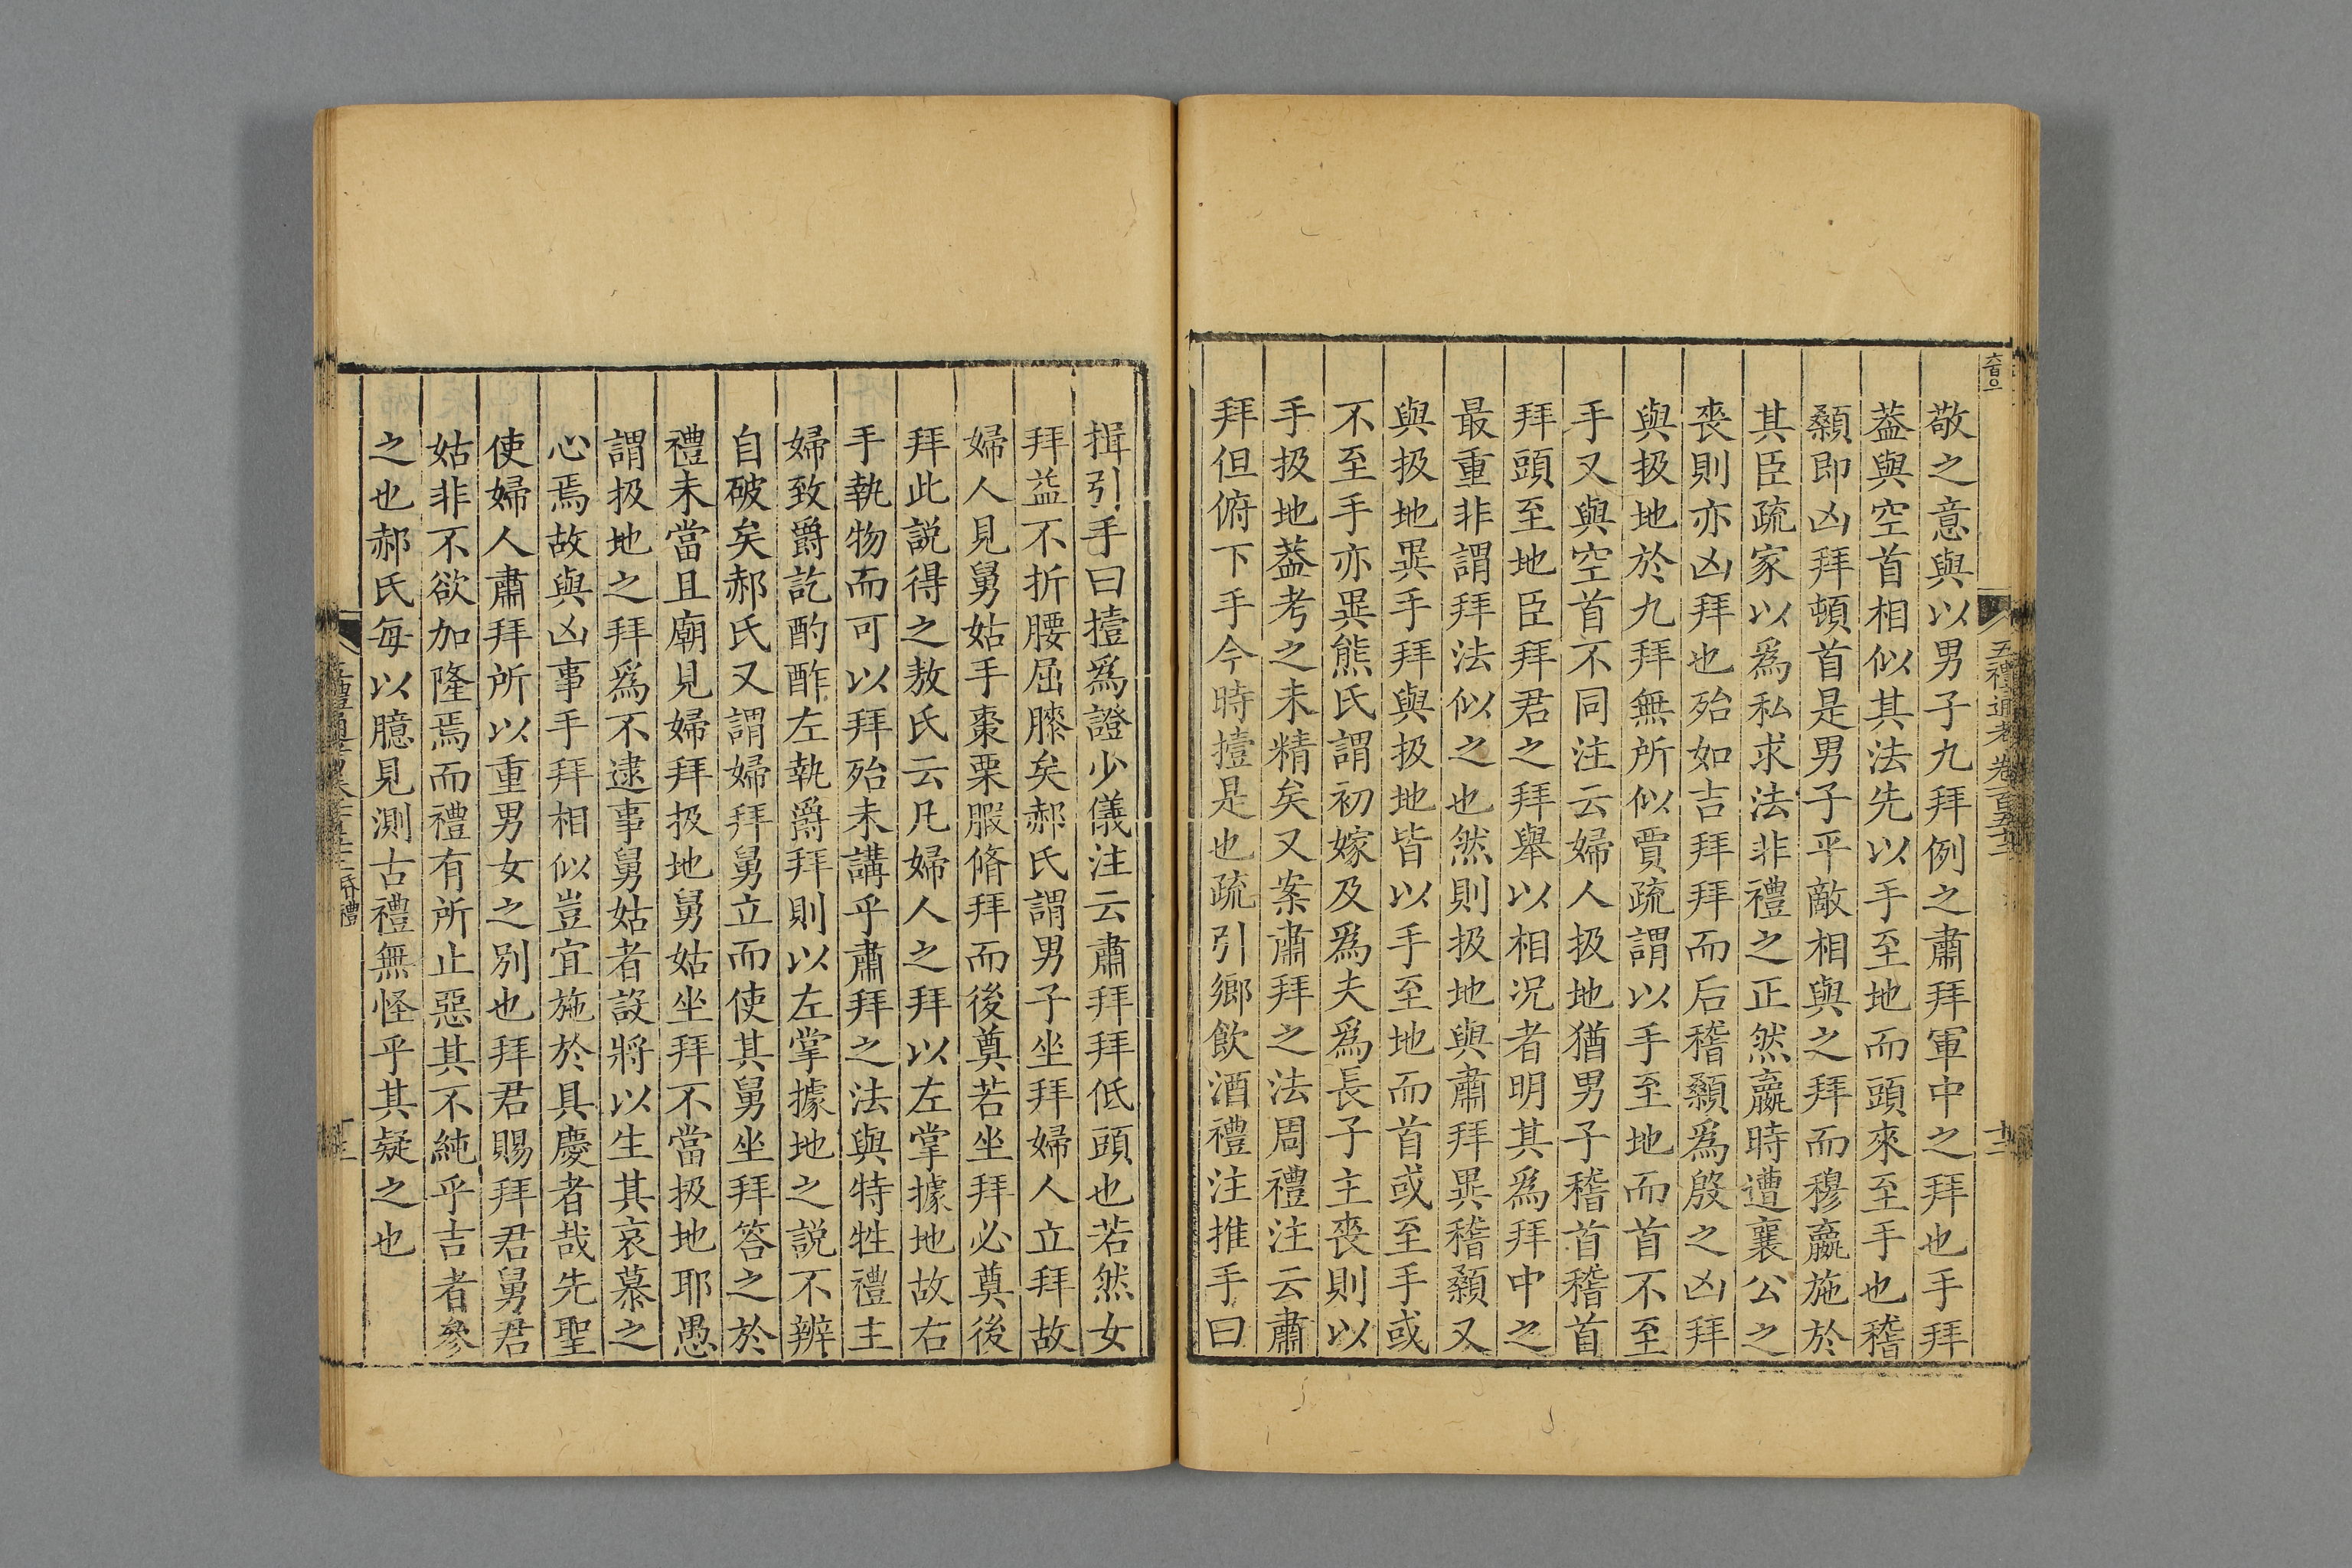 敬之意與以男子九拜例之肅拜軍中之拜也手拜
葢與空首相似其法先以手至地而頭來至手也稽
顙即凶拜頓首是男子平敵相與之拜而穆嬴施於
其臣疏家以爲私求法非禮之正然嬴時遭襄公之
喪則亦凶拜也殆如吉拜拜而后稽顙爲殷之凶拜
與扱地於九拜無所似賈疏謂以手至地而首不至
手又與空首不同注云婦人扱地猶男子稽首稽首
拜頭至地臣拜君之拜舉以相况者明其爲拜中之
最重非謂拜法似之也然則扱地與肅拜異稽顙又
與扱地異手拜與扱地皆以手至地而首或至手或
不至手亦異熊氏謂初嫁及爲夫爲長子主喪則以
手扱地葢考之未精矣又案肅拜之法周禮注云肅
拜但俯下手今時撎是也疏引鄉飲酒禮注推手曰
五禮通考卷一百五十二
十二
揖引手曰撎爲證少儀注云肅拜拜低頭也若然女
拜葢不折腰屈膝矣郝氏謂男子坐拜婦人立拜故
婦人見舅姑手棗栗腶脩拜而後奠若坐拜必奠後
拜此説得之敖氏云凡婦人之拜以左掌據地故右
手執物而可以拜殆未講乎肅拜之法與特牲禮主
婦致爵訖酌酢左執爵拜則以左掌據地之説不辨
自破矣郝氏又謂婦拜舅立而使其舅坐拜答之於
禮未當且廟見婦拜扱地舅姑坐拜不當扱地耶愚
謂扱地之拜爲不逮事舅姑者設將以生其哀慕之
心焉故與凶事手拜相似豈宜施於具慶者哉先聖
使婦人肅拜所以重男女之別也拜君賜拜君舅君
姑非不欲加隆焉而禮有所止惡其不純乎吉者參
之也郝氏每以臆見測古禮無怪乎其疑之也
昏禮